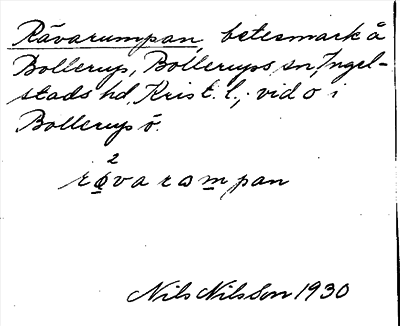 Rävarumpan, betesmark å
Bollerup, Bollerups sn, Ingel-
stads hd, Krist. l., vid o i
Bollerup ö.
2
rövarompan
Nils Nilsson 1930